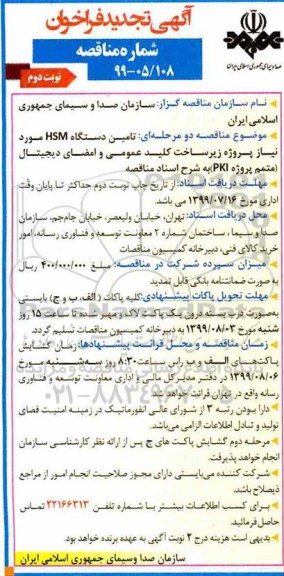 آگهی تجدید فراخوان
شماره مناقصه
۹۹-۰۵/۱۰۸
نوبت دوم
صدا و سیمای جمهوری اسلامی ایران
نام سازمان مناقصه گزار: سازمان صدا و سیمای جمهوری
اسلامی ایران
موضوع مناقصه دو مرحله‌ای: تامین دستگاه HSM مورد
نیاز پروژه زیرساخت کلید عمومی و امضای دیجیتال
(متمم پروژه PKI) به شرح اسناد مناقصه
مهلت دریافت اسناد: از تاریخ چاپ نوبت دوم حداکثر تا پایان وقت
اداری مورخ ۱۳۹۹/۰۷/۱۶ می باشد
محل دریافت اسناد: تهران، خیابان ولیعصر، خیابان جام‌جم، سازمان
صدا و سیما، ساختمان شماره ۲ معاونت توسعه و فناوری رسانه، امور
خرید کالای فنی، دبیرخانه کمیسیون مناقصات
میزان سپرده شرکت در مناقصه: مبلغ ۴۰۰/۰۰۰/۰۰۰ ریال
به صورت ضمانتنامه بانکی قابل تمدید
مهلت تحویل پاکات پیشنهادی: کلیه پاکات (الف، ب و ج) بایستی
به‌صورت دربسته درون یک پاکت لاک و مهر شده تا ساعت ۱۵ روز
شنبه مورخ ۱۳۹۹/۰۸/۰۳ به دبیرخانه کمیسیون مناقصات تسلیم گردد.
زمان مناقصه و محل قرائت پیشنهادها: زمان گشایش
پاکت‌های الف و ب راس ساعت ۸:۳۰ روز سه‌شنبه مورخ
۱۳۹۹/۰۸/۰۶ در دفتر مدیرکل مالی و اداری معاونت توسعه و فناوری
رسانه واقع در تهران قرائت خواهد شد.
دارا بودن رتبه ۳ از شورای عالی انفورماتیک در زمینه امنیت فضای
تولید و تبادل اطلاعات الزامی می‌باشد.
مرحله دوم گشایش پاکت های ج پس از ارائه نظر کارشناسی سازمان
انجام خواهد پذیرفت.
شرکت کننده می‌بایستی دارای مجوز صلاحیت انجام امور از مراجع
ذیصلاح باشد.
برای کسب اطلاعات بیشتر با شماره تلفن ۲۲۱۶۶۳۱۳ تماس
حاصل فرمائید.
بدیهی است هزینه درج ۲ نوبت آگهی به عهده برنده خواهد بود.
سازمان صدا وسیمای جمهوری اسلامی ایران